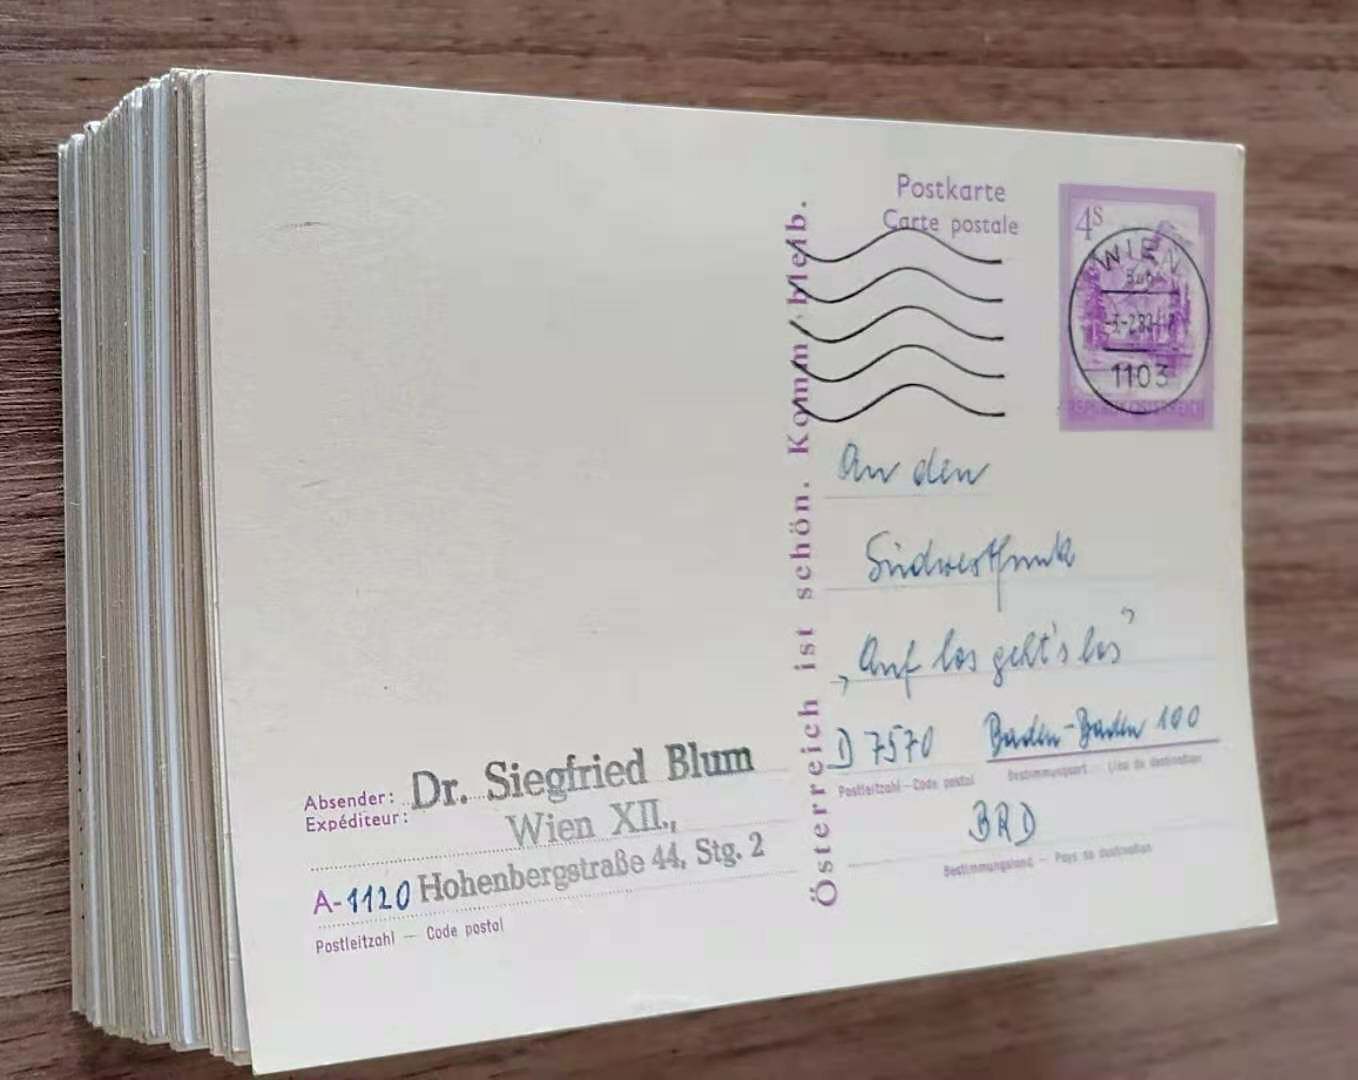 Postkarte
Carte postale
4S
WIEN
1103
REPUBLIK ÖSTERREICH
Österreich ist schön. Komm, bleib.
An den
Südwestfunk
„Auf los geht's los"
D 7570 Baden-Baden 100
Postleitzahl – Code postal Bestimmungsort – Lieu de destination
BRD
Bestimmungsland – Pays de destination
Absender: Dr. Siegfried Blum
Expéditeur:
Wien XII.,
A-1120 Hohenbergstraße 44, Stg. 2
Postleitzahl — Code postal